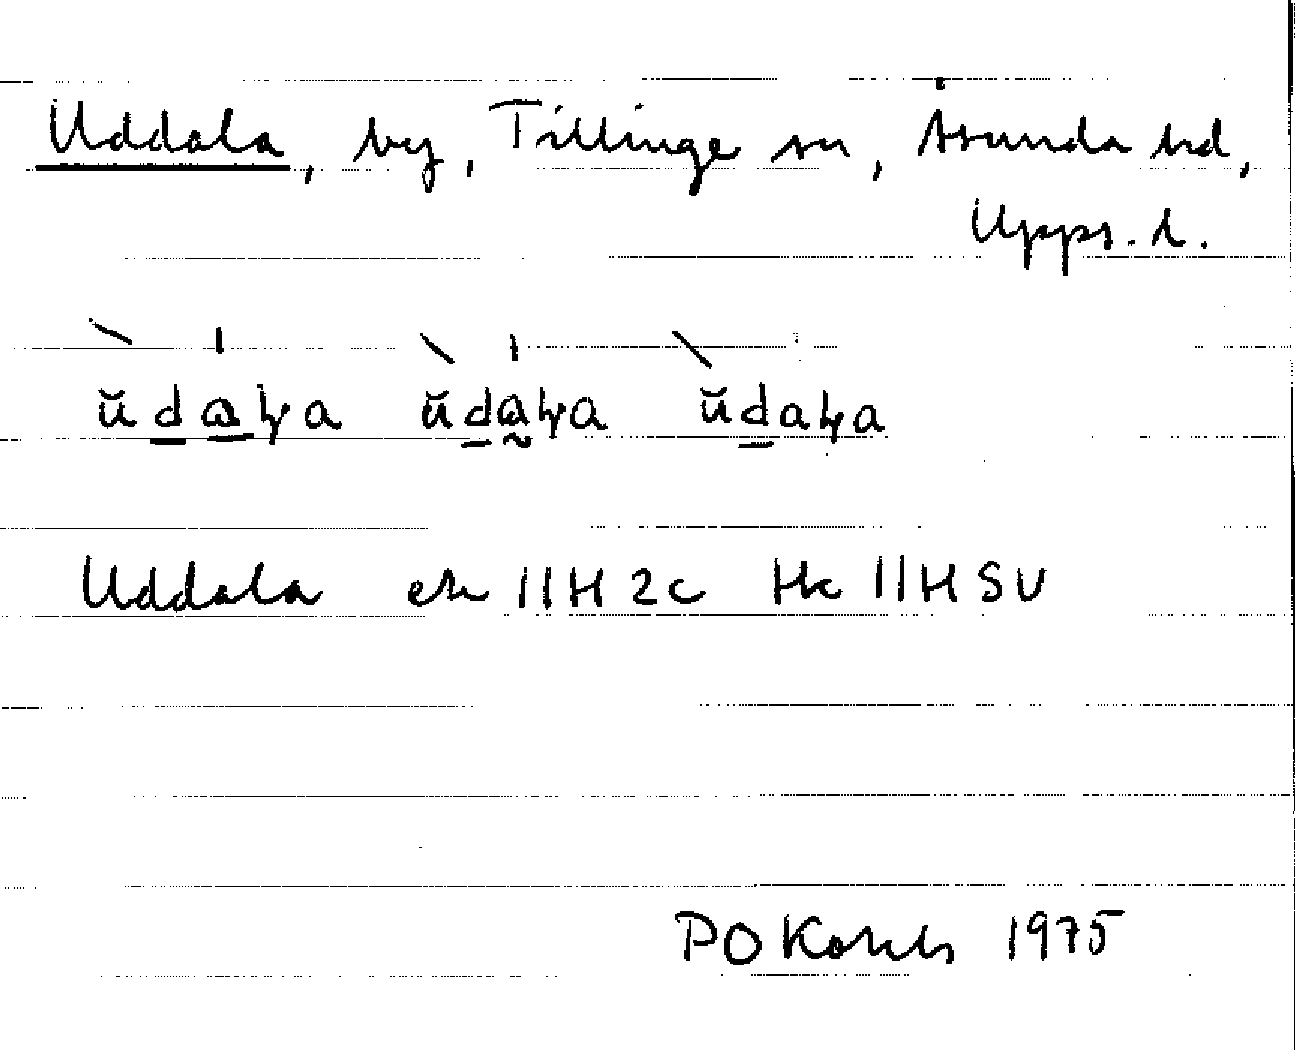 Uddala, by, Tillinge sn, Åsunda hd,
Upps. l.
ŭdaḷa ŭdaḷa ŭdaḷa
Uddala ek 11H 2c Hk 11H SV
PO 1975